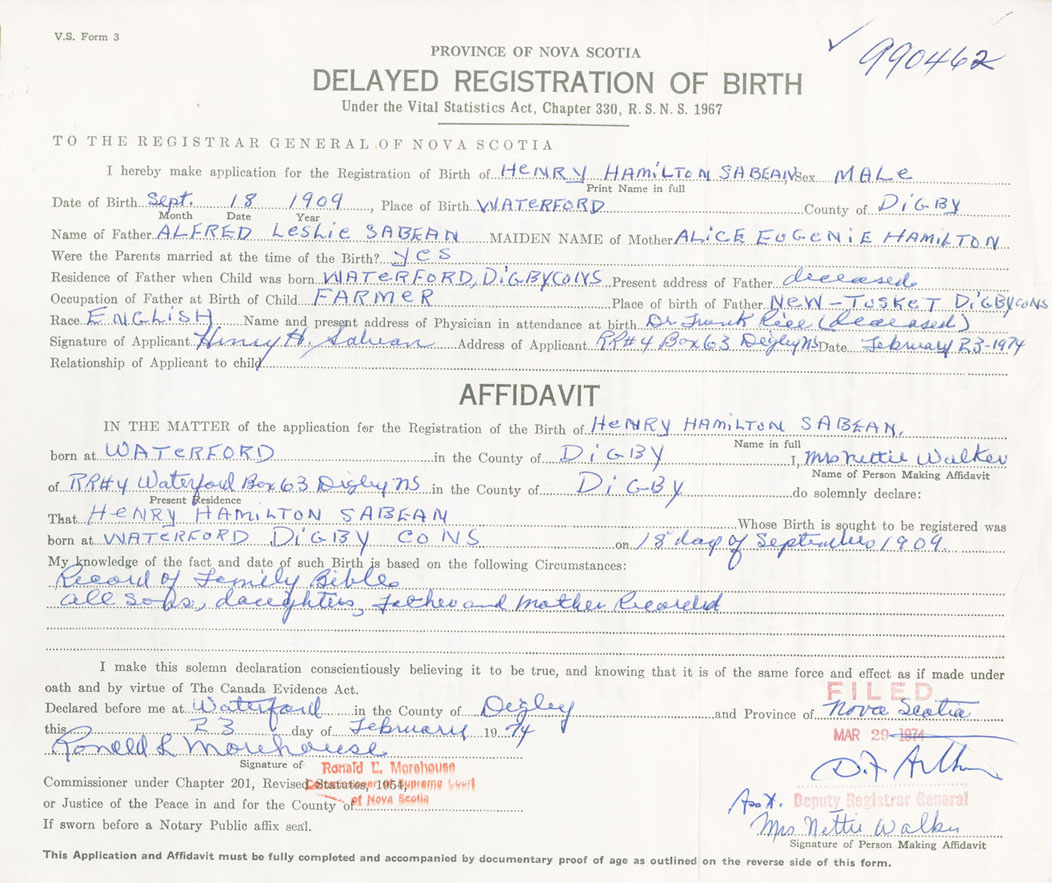 V.S. Form 3
990462
PROVINCE OF NOVA SCOTIA
DELAYED REGISTRATION OF BIRTH
Under the Vital Statistics Act, Chapter 330, R.S.N.S. 1967
TO THE REGISTRAR GENERAL OF NOVA SCOTIA
I hereby make application for the Registration of Birth of HENRY HAMILTON SABEAN, Sex MALE
Print Name in full
Date of Birth Sept. 18 1909, Place of Birth WATERFORD County of DIGBY
Month Date Year
Name of Father ALFRED LESLIE SABEAN MAIDEN NAME of Mother ALICE EUGENIE HAMILTON
Were the Parents married at the time of the Birth? YES
Residence of Father when Child was born WATERFORD, DIGBY CO NS Present address of Father deceased
Occupation of Father at Birth of Child FARMER Place of birth of Father NEW-TUSKET DIGBY CO NS
Race ENGLISH Name and present address of Physician in attendance at birth Dr. Frank Rice (deceased)
Signature of Applicant Henry H. Sabean Address of Applicant RR#4 Box 63 Digby NS Date February 23-1974
Relationship of Applicant to child
AFFIDAVIT
IN THE MATTER of the application for the Registration of the Birth of HENRY HAMILTON SABEAN,
Name in full
born at WATERFORD in the County of DIGBY I, Mrs Nettie Walker
Name of Person Making Affidavit
of RR#4 Waterford Box 63 Digby NS in the County of DIGBY do solemnly declare:
Present Residence
That HENRY HAMILTON SABEAN Whose Birth is sought to be registered was
born at WATERFORD DIGBY CO NS on 18 day of September 1909.
My knowledge of the fact and date of such Birth is based on the following Circumstances:
Record of Family Bible
all sons, daughters, Father and Mother Recorded
I make this solemn declaration conscientiously believing it to be true, and knowing that it is of the same force and effect as if made under
oath and by virtue of The Canada Evidence Act.
FILED
Declared before me at Waterford in the County of Digby and Province of Nova Scotia
this 23 day of February 1974
MAR 29 1974
Ronald L Morehouse
Signature of
Ronald L. Morehouse
D.F. Arthur
Commissioner under Chapter 201, Revised Statutes, 1954,
Commissioner of Supreme Court
of Nova Scotia
or Justice of the Peace in and for the County of
Deputy Registrar General
If sworn before a Notary Public affix seal.
Mrs Nettie Walker
Signature of Person Making Affidavit
This Application and Affidavit must be fully completed and accompanied by documentary proof of age as outlined on the reverse side of this form.